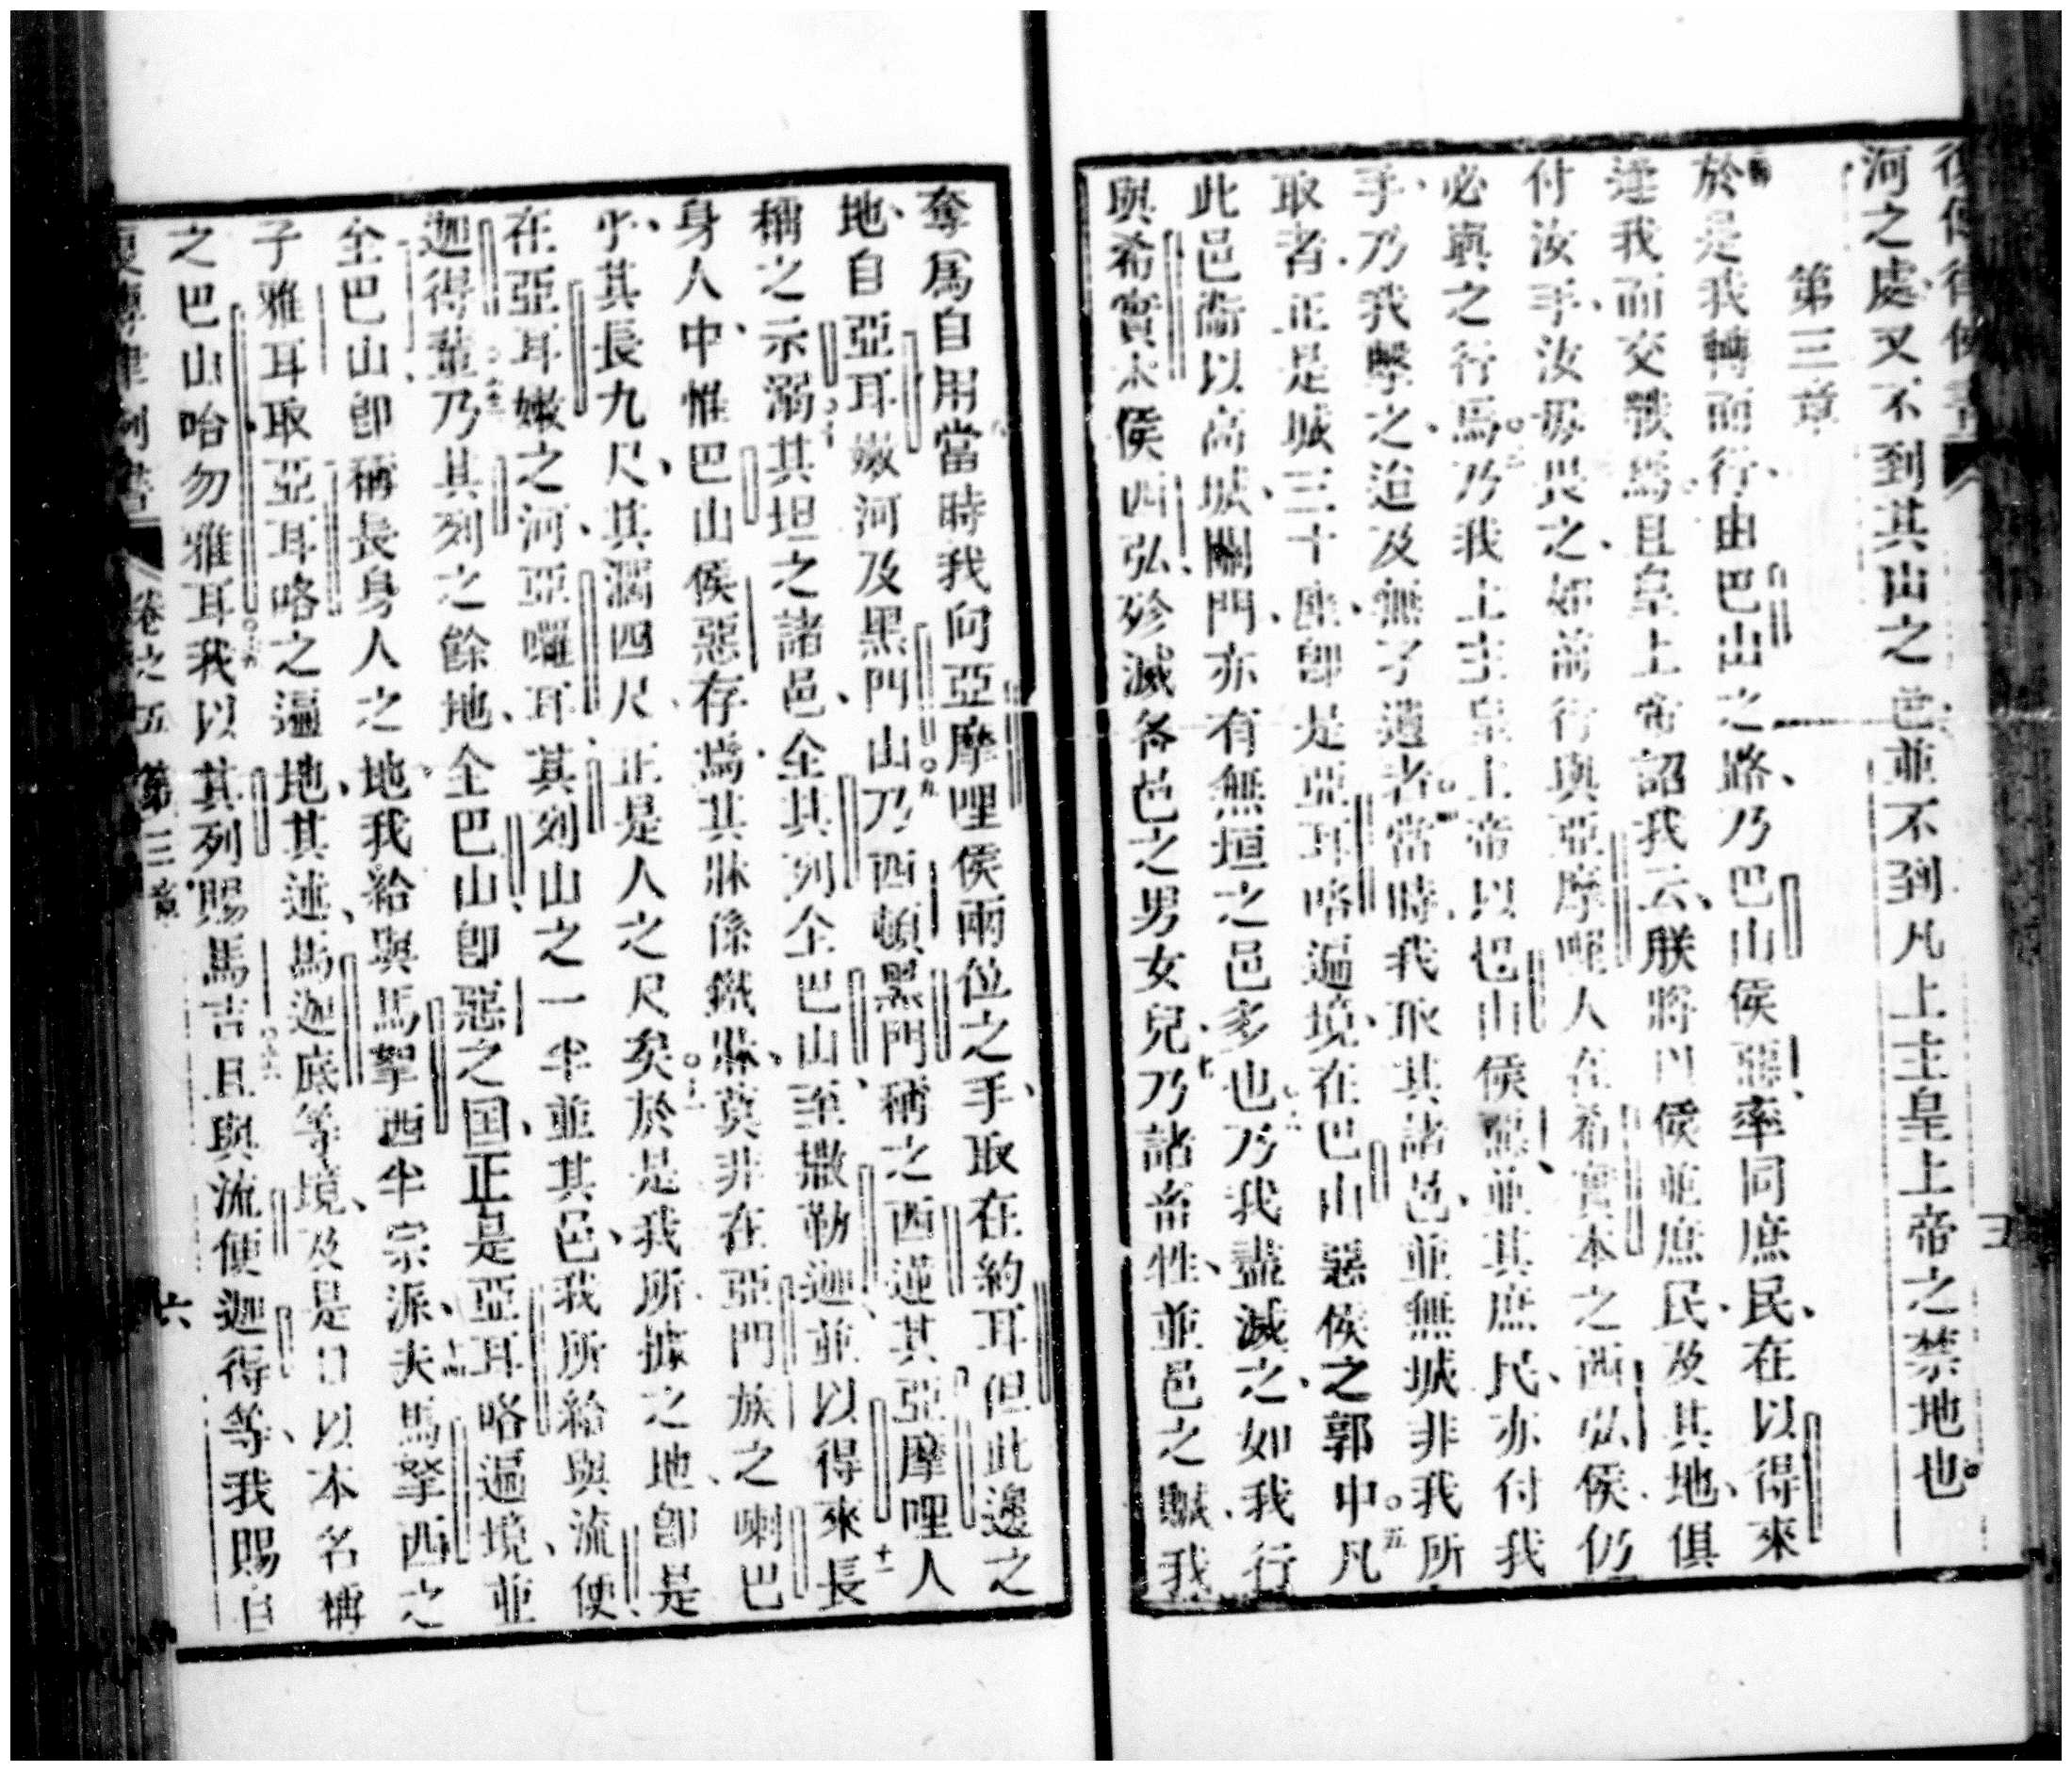 復傳律例書
河之處又不到其山之邑並不到凡上主皇上帝之禁地也
第三章
於是我轉而行由巴山之路乃巴山侯惡率同庶民在以得來
逢我而交戰焉且皇上帝詔我云朕將以侯並庶民及其地俱
付汝手汝毋畏之如前行與亞摩哩人在希實本之西弘侯仍
必與之行焉乃我上主皇上帝以巴山侯惡並其庶民亦付我
手乃我擊之迨及無孑遺者當時我取其諸邑並無城非我所
取者正是城三十座即是亞耳咯遍境在巴山惡侯之郭中凡
此邑備以高城關門亦有無垣之邑多也乃我盡滅之如我行
與希實本侯西弘殄滅各邑之男女兒乃諸畜牲並邑之贓我
奪爲自用當時我向亞摩哩侯兩位之手取在約耳但此邊之
地自亞耳嫩河及黑門山乃西頓黑門稱之西連其亞摩哩人
稱之示溺其坦之諸邑全其列全巴山至撒勒迦並以得來長
身人中惟巴山侯惡存焉其牀係鐵牀莫非在亞門族之喇巴
乎其長九尺其濶四尺正是人之尺矣於是我所據之地即是
在亞耳嫩之河亞囉耳其列山之一半並其邑我所給與流便
迦得輩乃其列之餘地全巴山即惡之国正是亞耳咯遍境並
全巴山即稱長身人之地我給與馬挐西半宗派夫馬拏西之
子雅耳取亞耳咯之遍地其連馬迦底等境及是日以本名稱
之巴山哈勿雅耳我以其列賜馬吉且與流便迦得等我賜自
復傳律例書 卷之五 第三章 六